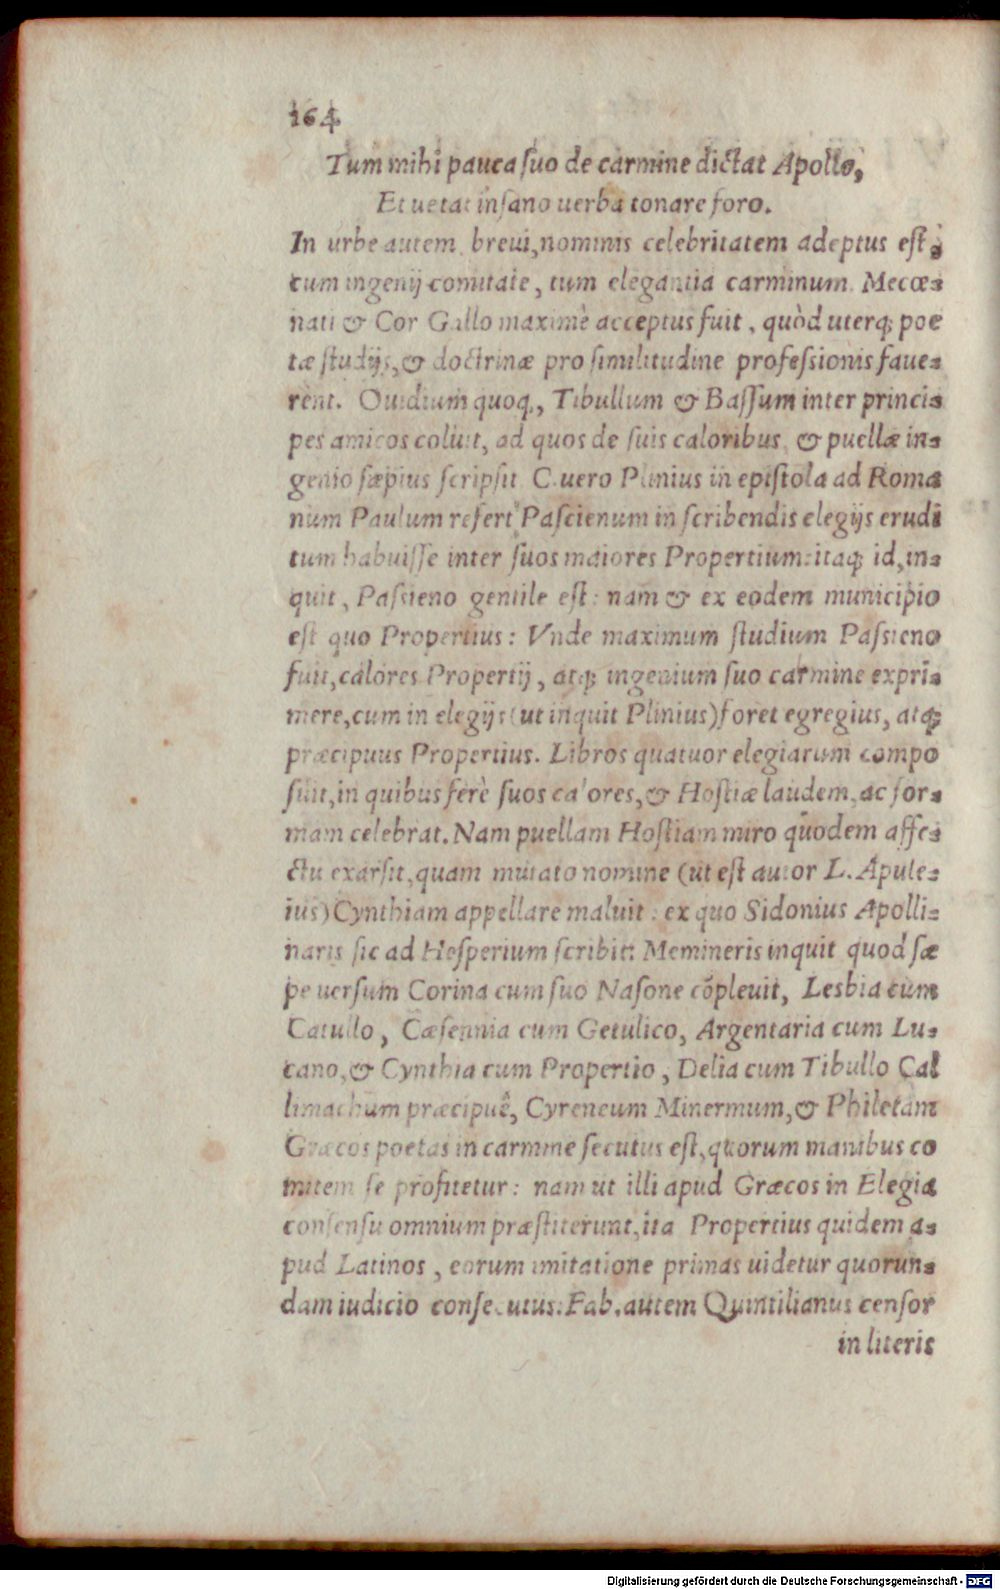 164
Tum mihi pauca suo de carmine dictat Apollo,
Et uetat insano uerba tonare foro.
In urbe autem breui, nominis celebritatem adeptus est,
cum ingenij comitate, tum elegantia carminum. Mecœ-
nati & Cor Gallo maximè acceptus fuit, quòd uterq; poe
tæ studijs, & doctrinæ pro similitudine professionis faue-
rent. Ouidium quoq, Tibullum & Bassum inter princi-
pes amicos coluit, ad quos de suis caloribus, & puellæ in-
genio sæpius scripsit C. uero Plinius in epistola ad Roma
num Paulum refert Pascienum in scribendis elegijs erudi
tum habuisse inter suos maiores Propertium: itaq; id, in-
quit, Passieno gentile est: nam & ex eodem municipio
est quo Propertius: Vnde maximum studium Passieno
fuit, calores Propertij, atq; ingenium suo carmine expri-
mere, cum in elegijs (ut inquit Plinius) foret egregius, atq;
præcipuus Propertius. Libros quatuor elegiarum compo
suit, in quibus ferè suos calores, & Hostiæ laudem, ac for-
mam celebrat. Nam puellam Hostiam miro quodem affe-
ctu exarsit, quam mutato nomine (ut est autor L. Apule-
ius) Cynthiam appellare maluit: ex quo Sidonius Apolli-
naris sic ad Hesperium scribit: Memineris inquit quod sæ
pe uersum Corina cum suo Nasone cōpleuit, Lesbia cum
Catullo, Cæsennia cum Getulico, Argentaria cum Lu-
cano, & Cynthia cum Propertio, Delia cum Tibullo Cal
limachum præcipuê, Cyreneum Minermum, & Philetam
Græcos poetas in carmine secutus est, quorum manibus co
mitem se profitetur: nam ut illi apud Græcos in Elegia
consensu omnium præstiterunt, ita Propertius quidem a-
pud Latinos, eorum imitatione primas uidetur quorun-
dam iudicio consecutus: Fab. autem Quintilianus censor
in literis
Digitalisierung gefördert durch die Deutsche Forschungsgemeinschaft - DFG